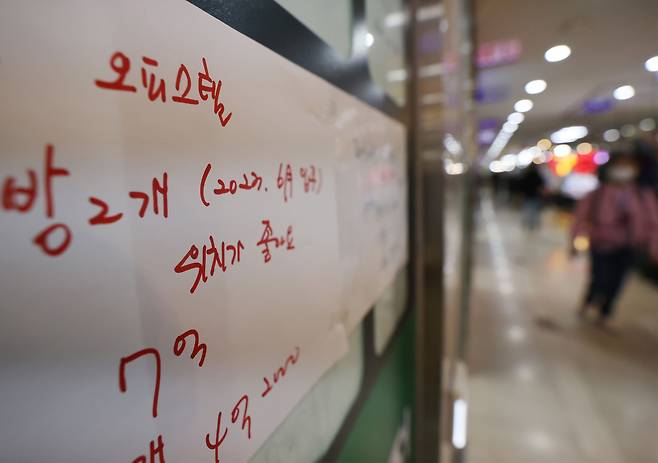 오피스텔
방2개 (2022. 6月 입주)
위치가 좋아요
7억
4억 2000